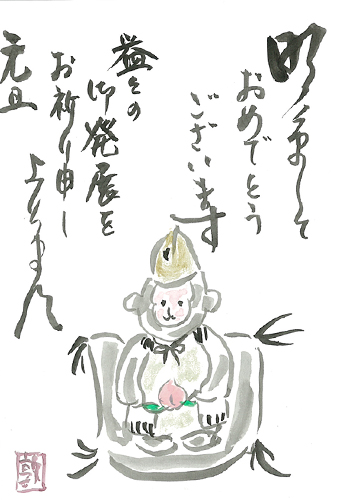 明けまして
おめでとう
ございます
益々の
御発展を
お祈り申し
上げます
元旦